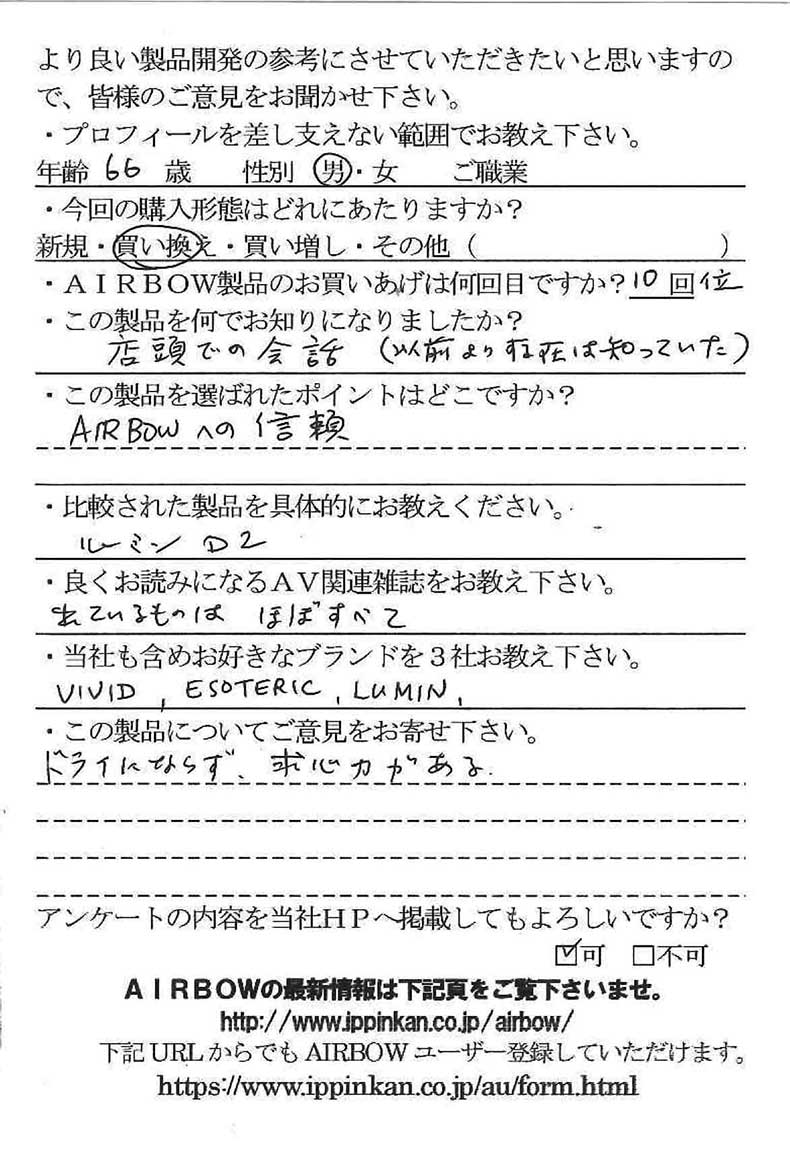 より良い製品開発の参考にさせていただきたいと思いますの
で、皆様のご意見をお聞かせ下さい。
・プロフィールを差し支えない範囲でお教え下さい。
年齢 66 歳 性別 男・女 ご職業
・今回の購入形態はどれにあたりますか？
新規・買い換え・買い増し・その他（ ）
・ＡＩＲＢＯＷ製品のお買いあげは何回目ですか？10 回位
・この製品を何でお知りになりましたか？
店頭での会話（以前より存在は知っていた）
・この製品を選ばれたポイントはどこですか？
AIRBOWへの信頼
・比較された製品を具体的にお教えください。
ルーミン D2
・良くお読みになるＡＶ関連雑誌をお教え下さい。
出ているものは ほぼすべて
・当社も含めお好きなブランドを３社お教え下さい。
VIVID, ESOTERIC, LUMIN,
・この製品についてご意見をお寄せ下さい。
ドライにならず、求心力がある.
アンケートの内容を当社ＨＰへ掲載してもよろしいですか？
☑可 □不可
ＡＩＲＢＯＷの最新情報は下記頁をご覧下さいませ。
http://www.ippinkan.co.jp/airbow/
下記 URL からでも AIRBOW ユーザー登録していただけます。
https://www.ippinkan.co.jp/au/form.html